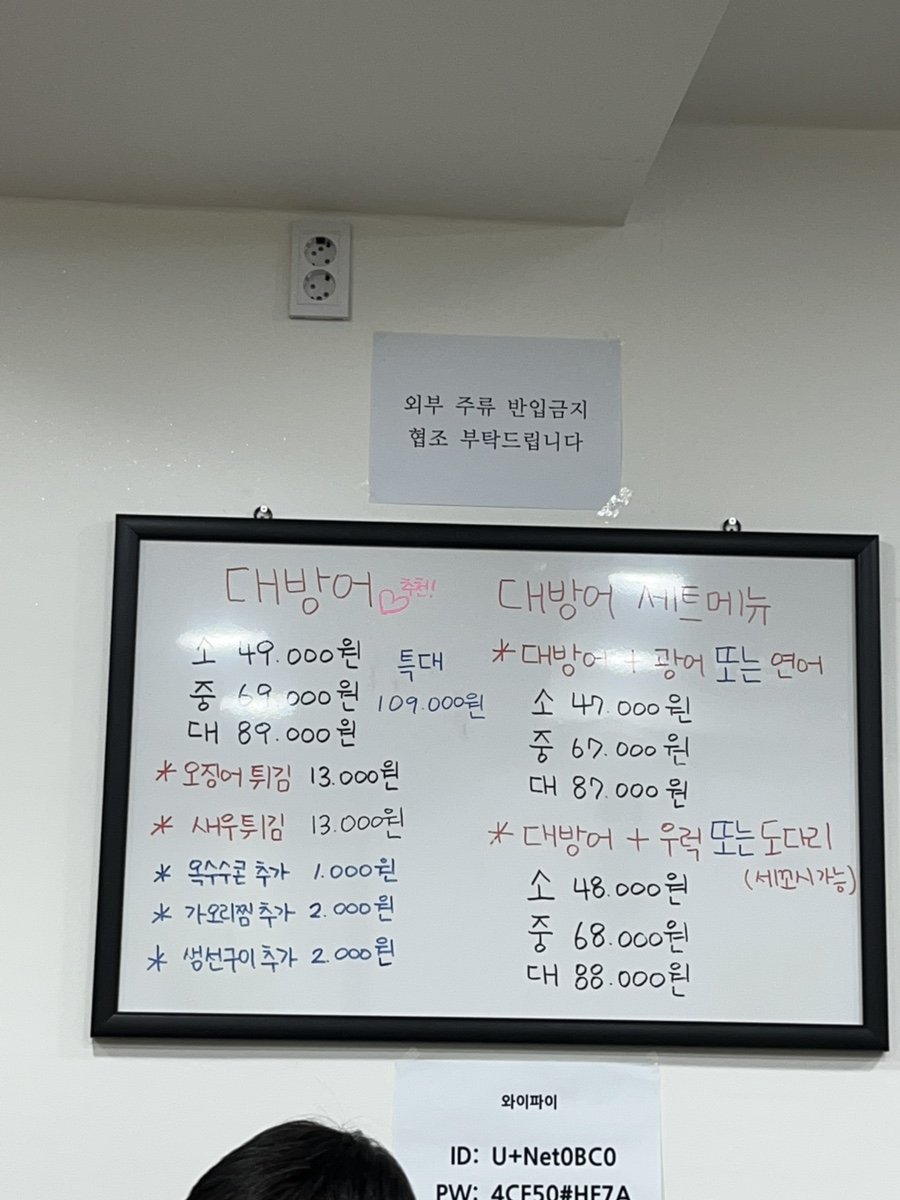 외부 주류 반입금지
협조 부탁드립니다
대방어 추천!
소 49.000원
중 69.000원
대 89.000원
특대
109.000원
* 오징어 튀김 13.000원
* 새우튀김 13.000원
* 옥수수콘 추가 1.000원
* 가오리찜 추가 2.000원
* 생선구이 추가 2.000원
대방어 세트메뉴
* 대방어 + 광어 또는 연어
소 47.000원
중 67.000원
대 87.000원
* 대방어 + 우럭 또는 도다리
(세꼬시가능)
소 48.000원
중 68.000원
대 88.000원
와이파이
ID: U+Net0BC0
PW: 4CF50#HF7A